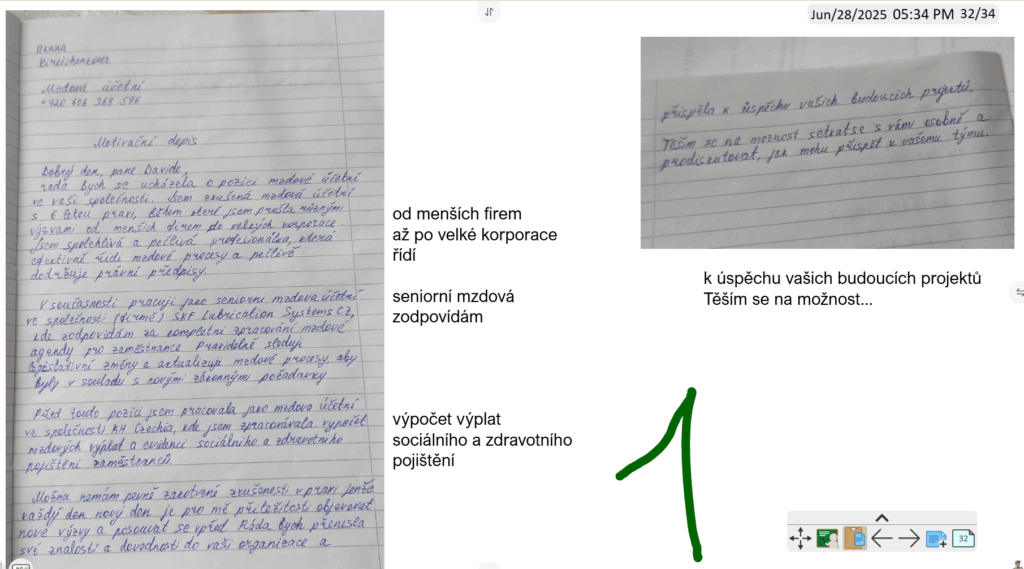 Jun/28/2025 05:34 PM 32/34
Hanna
Kireichenkova
Mzdová účetní
+420 606 368 586
Motivační dopis
Dobrý den, pane Davide,
ráda bych se ucházela o pozici mzdové účetní
ve vaši společnosti. Jsem zkušená mzdová účetní
s 6 letou praxí, během které jsem prošla různými
výzvami od menších firem do velkých korporace
Jsem spolehlivá a pečlivá profesionálka, která
efektivně řídi mzdové procesy a pečlivě
dodržuje právní předpisy.
V současnosti pracuji jako seniorni mzdova účetní
ve společnosti (firmě) SKF Lubrication Systems CZ,
kde zodpovidám za kompletní zpracování mzdové
agendy pro zaměstnance Pravidelně sleduji
legislativní změny a aktualizuji mzdové procesy aby
byly v souladu s novými zákonnými požadavky
Před touto pozicí jsem pracovala jako mzdova účetní
ve společnosti KH Czechia, kde jsem zpracovávala vypočet
mzdových výplat a evidenci sociálniho a zdravotního
pojištění zaměstnanců.
Možna nemám pevně zakotvené zkušenosti v praxi jenže
každý den nový den je pro mě příležitosti objevovat
nové výzvy a posouvat se vpřed Ráda bych přenesla
své znalosti a dovodnosti do vaši organizace a
od menších firem
až po velké korporace
řídí
seniorní mzdová
zodpovídám
výpočet výplat
sociálního a zdravotního
pojištění
přispěla k úspěchu vašich budoucích projektů.
Těším se na možnost setkatse s vámi osobně a
prodiskutovat, jak mohu přispět k vašemu týmu.
k úspěchu vašich budoucích projektů
Těším se na možnost...
1
32